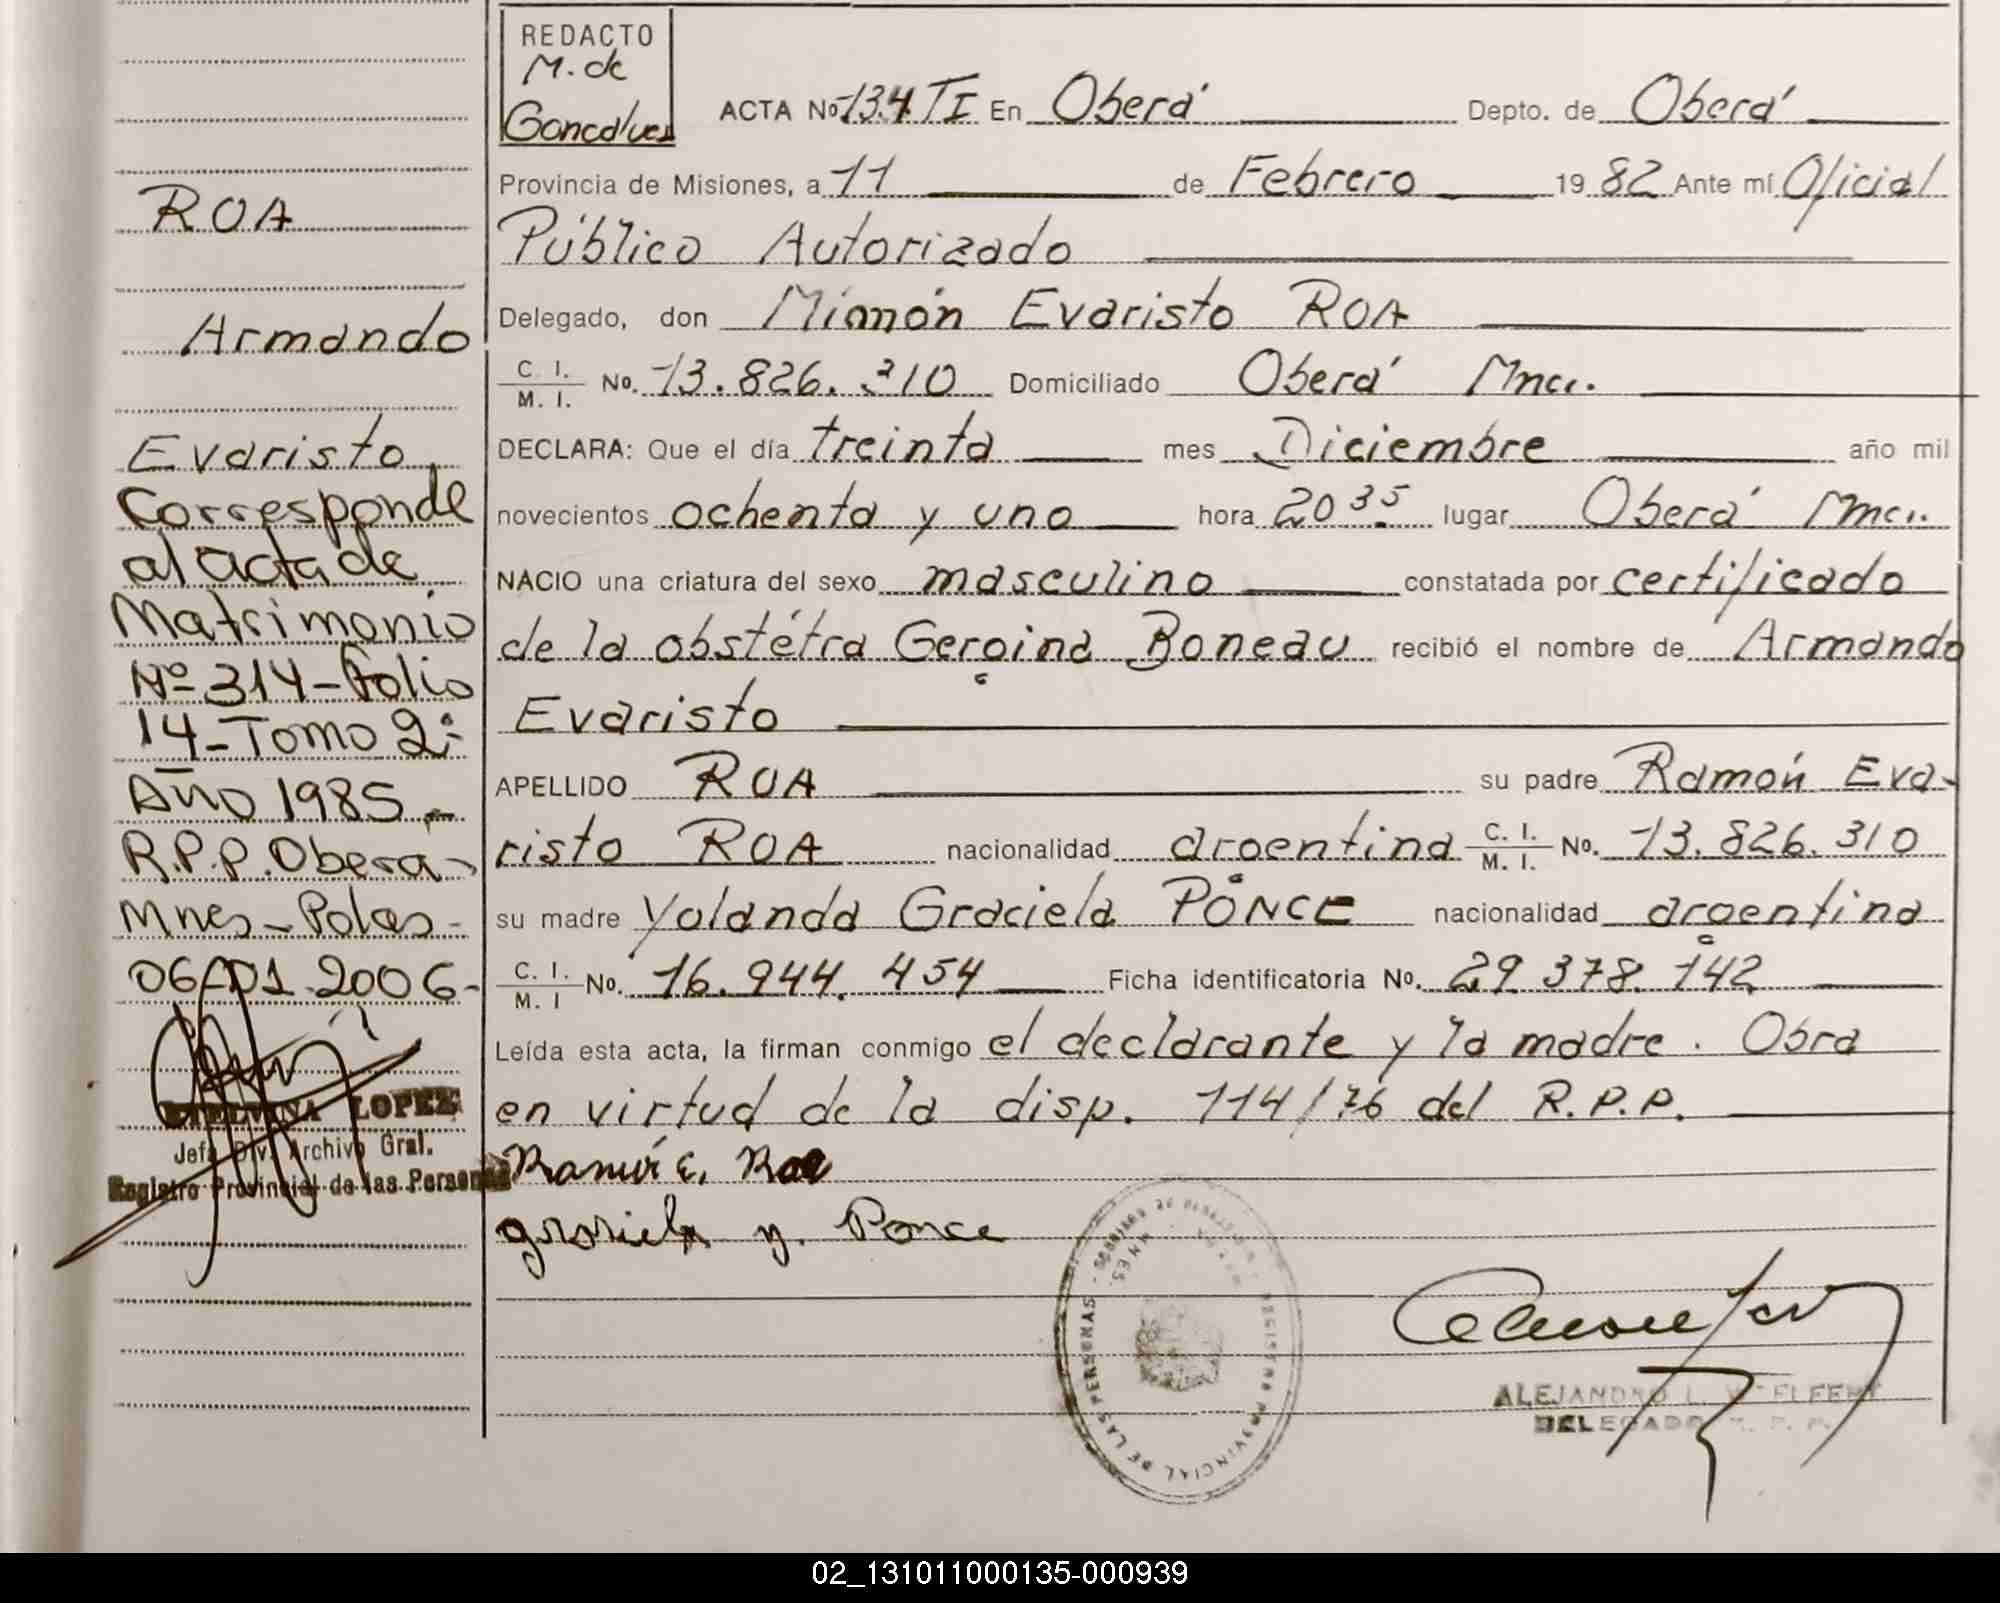 REDACTO
M. de
Goncalves
ACTA No 134 TI En Oberá Depto. de Oberá
Provincia de Misiones, a 11 de Febrero 19 82 Ante mí Oficial
Público Autorizado
Delegado, don Mimón Evaristo ROA
C. I.
M. I. No. 13.826.310 Domiciliado Oberá Mnes.
DECLARA: Que el día treinta mes Diciembre año mil
novecientos ochenta y uno hora 20 35 lugar Oberá Mnes.
NACIO una criatura del sexo masculino constatada por certificado
de la obstétra Georgina Boneau recibió el nombre de Armando
Evaristo
APELLIDO ROA su padre Ramón Eva-
risto ROA nacionalidad argentina C. I.
M. I. No. 13.826.310
su madre Yolanda Graciela PONCE nacionalidad argentina
C. I.
M. I No. 16.944.454 Ficha identificatoria No. 29.378.142
Leída esta acta, la firman conmigo el declarante y la madre. Obra
en virtud de la disp. 114/76 del R.P.P.
Ramón E. Roa
graciela y. Ponce
REGISTRO PROVINCIAL DE LAS PERSONAS
MNES.
ALEJANDRO L.
DELEGADO R. P. P.
ROA
Armando
Evaristo
Corresponde
al acta de
Matrimonio
Nº 314-Folio
14-Tomo 2º
Año 1985-
R.P.P. Obera-
Mnes-Polas-
06-01-2006-
ETELVINA LOPEZ
Jefa Div. Archivo Gral.
Registro Provincial de las Personas
02_131011000135-000939